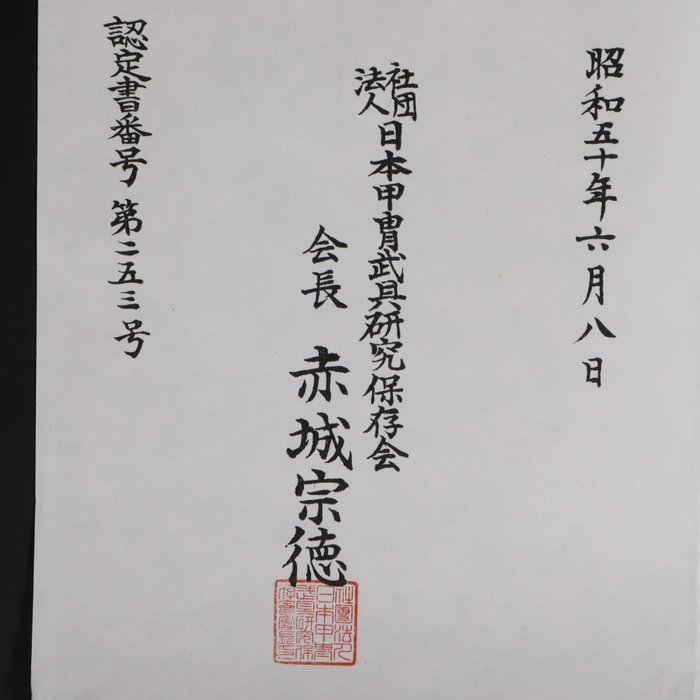 昭和五十年六月八日
社団法人日本甲冑武具研究保存会
会長 赤城宗徳
社團法人
日本甲冑
武具研究保
存會會長印
認定書番号 第二五三号